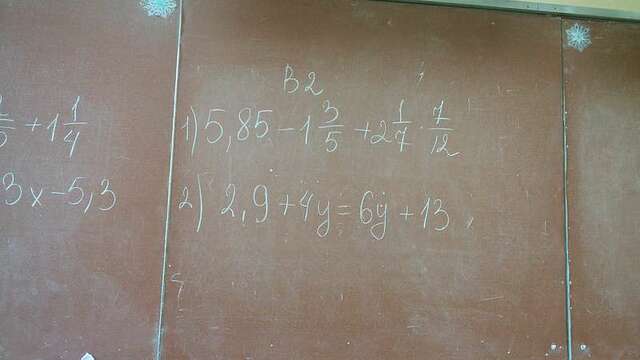 + 1 1/4
3x - 5,3
B2
1) 5,85 - 1 3/5 + 2 1/7 · 7/12
2) 2,9 + 4y = 6y + 13